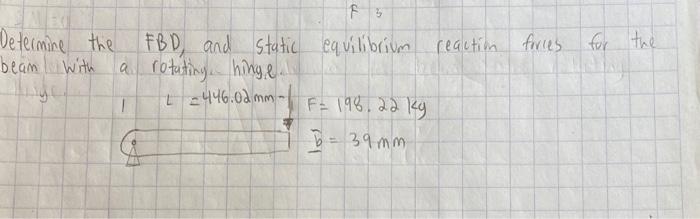 F 3
Determine the FBD, and static equilibrium reaction forces for the
beam with a rotating hinge.
y
L = 446.02 mm
F = 198.22 kg
b = 39 mm